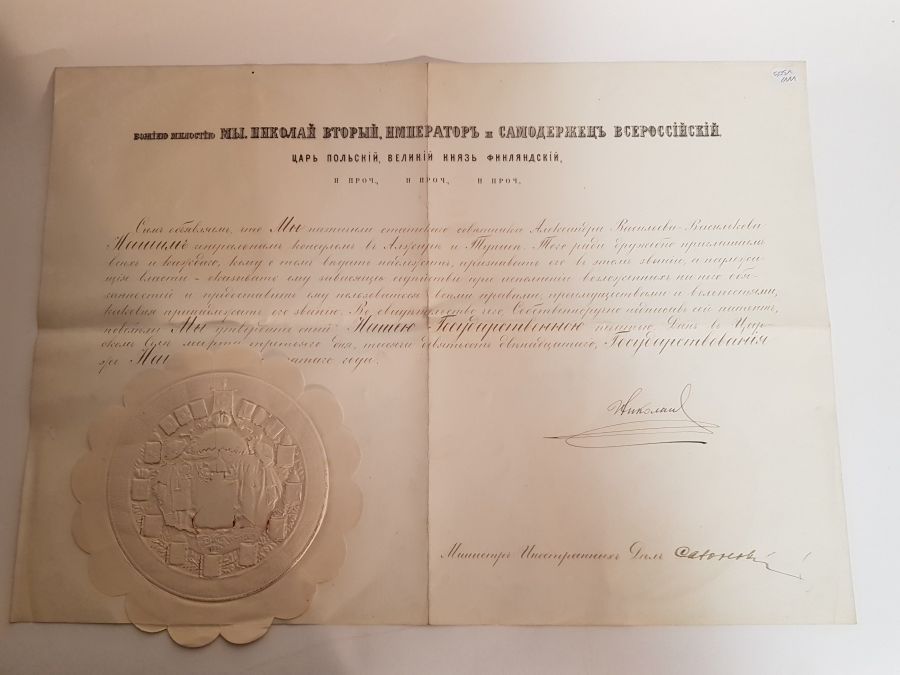 БОЖІЕЮ МИЛОСТІЮ МЫ, НИКОЛАЙ ВТОРЫЙ, ИМПЕРАТОРЪ и САМОДЕРЖЕЦЪ ВСЕРОССІЙСКІЙ,
ЦАРЬ ПОЛЬСКІЙ, ВЕЛИКІЙ КНЯЗЬ ФИНЛЯНДСКІЙ,
И ПРОЧ., И ПРОЧ., И ПРОЧ.
Симъ объявляемъ, что Мы назначили статскаго совѣтника Александра Васильева-Василькова
Нашимъ генеральнымъ консуломъ въ Алжирѣ и Тунисѣ. Того ради дружебно приглашаемъ
всѣхъ и каждаго, кому о семъ вѣдать надлежитъ, признавать его въ этомъ званіи, а
власти - оказывать ему зависящее содѣйствіе при исполненіи возложенныхъ на него обя-
занностей и предоставить ему пользоваться всѣми правами, преимуществами и вольностями,
каковыя принадлежатъ его званію. Во свидѣтельство чего, Собственноручно подписавъ сей патентъ,
повелѣли Мы утвердить оный Нашею Государственною печатью. Данъ въ Цар-
скомъ Селѣ марта третьяго дня, тысяча девятьсотъ двѣнадцатаго, Государствованія
же Наш года.
Николай
Министръ Иностранныхъ Дѣлъ Сазоновъ